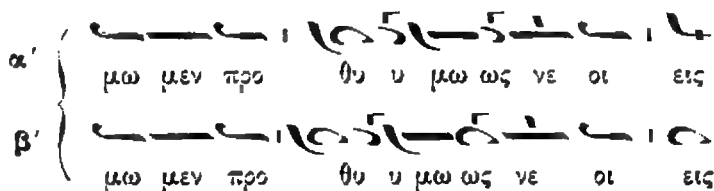 α'
μω μεν προ θυ υ μω ως νε οι εις
β'
μω μεν προ θυ υ μω ως νε οι εις